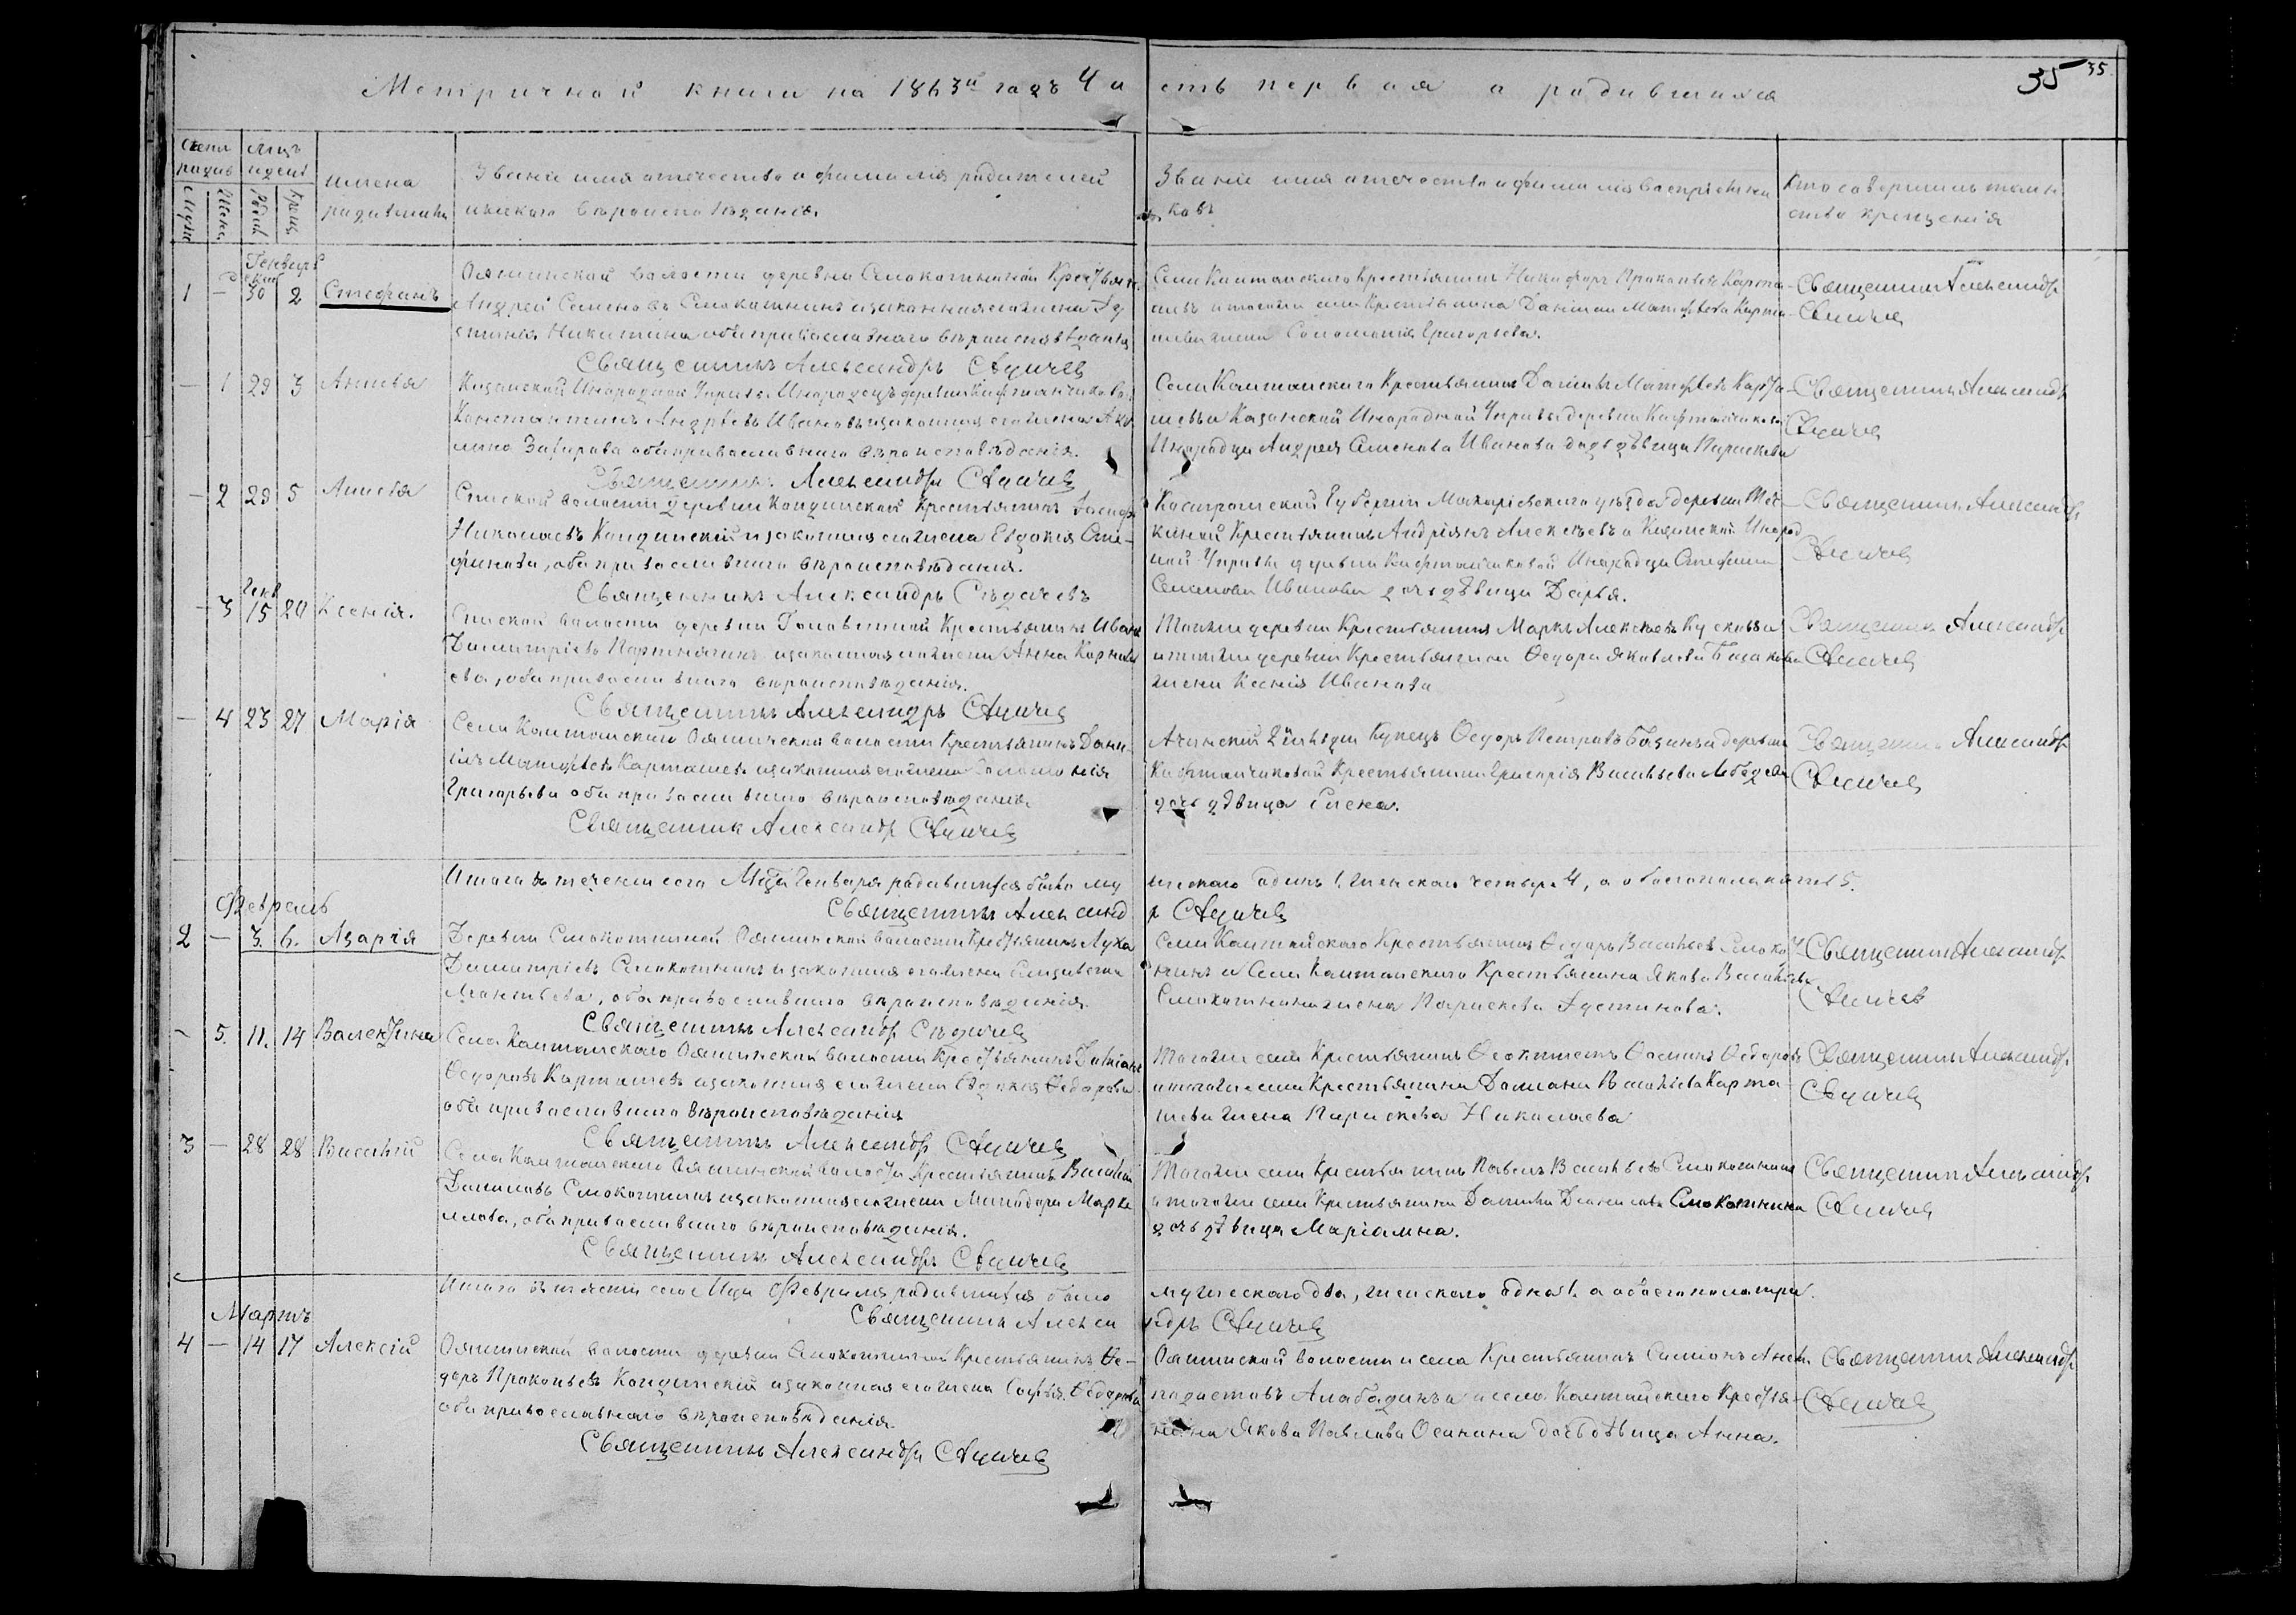 Метричной книги на 1863й годъ Часть первая о родившихся
35 35
Счетъ родив
Мцъ и день
Имена родившихъ
Званіе имя отечество и фамилія родителей
и какого вѣроисповѣданія.
Званіе имя отечество и фамилія воспріемни
ковъ
Кто совершилъ таин
ство крещенія
Генварь
1 – 30 2 Стефанъ
Ояшинской волости деревни Смокотиной Крестьян.
Андрей Семеновъ Смокотнинъ и законная его жена
Никитина оба православнаго вѣроисповѣданія
Священникъ Александръ Сѣдачев
Села Каштанскаго Крестьянинъ Никифоръ Прокопьев Карта
шевъ и того же села Крестьянина Даніила Матфѣева Карта
шева жена Соломонія Григорьева.
Священникъ Александр
Сѣдачев
– 1 29 3 Анисья
Казанской Инородной Управы Инородецъ деревни Кафтанчиково
Константинъ Андрѣевъ Ивановъ и законная его жена Аку
лина Захарова оба православнаго вѣроисповѣданія.
Священник Александръ Сѣдачев
Села Каштанскаго Крестьянинъ Даніилъ Матфѣевъ Карта
шевъ и Казанской Инородной Управы деревни Кафтанчиковой
Инородца Андрея Семенова Иванова дочь дѣвица Параскева
Священникъ Александр
Сѣдачев
– 2 29 5 Анисья
Спаской волости деревни Кондинской Крестьянинъ
Николаевъ Кондинскій и законная его жена Евдокія Сте-
фанова, оба православнаго вѣроисповѣданія.
Священникъ Александръ Сѣдачевъ
Костромской Губерніи Макарьевскаго уѣзда деревни
Крестьянинъ Андріянъ Алексѣевъ и Казанской Инород
ной Управы деревни Кафтанчиковой Инородца Стефана
Семенова Иванова дочь дѣвица Дарья.
Священникъ Александр
Сѣдачев
Генв
– 3 15 20 Ксенія.
Спаской волости деревни Головиной Крестьянинъ Иванъ
Димитріевъ Портнягинъ и законная его жена Анна Корнил
ева, оба православнаго вѣроисповѣданія.
Священникъ Александръ Сѣдачев
Той же деревни Крестьянинъ Маркъ Алексѣевъ Кусковъ
и той же деревни Крестьянина Ѳедора Яковлева
жена Ксенія Иванова
Священник Александр
Сѣдачев
– 4 23 27 Марія
Села Каштанскаго Ояшинской волости Крестьянинъ Дани-
илъ Матфѣевъ Карташевъ и законная его жена Соломонія
Григорьева оба православнаго вѣроисповѣданія
Священник Александр Сѣдачев
Ачинскій 2й гильдіи Купецъ Ѳедоръ Петровъ и деревни
Кафтанчиковой Крестьянина Григорія Васильева Лебедева
дочь дѣвица Елена.
Священник Александр
Сѣдачев
Итого въ теченіи сего Мца Генваря родившихся было му
жескаго одинъ 1. женскаго четыре 4, а обоего пола пять 5.
Священникъ Александ
р Сѣдачев
Февраль
2 – 3. 6. Азарія
Деревни Смокотиной Ояшинской волости Крестьянинъ Лука
Димитріевъ Смокотнинъ и законная его жена Елисавета
Леонтьева, оба православнаго вѣроисповѣданія.
Священникъ Александр Сѣдачев
Села Каштанскаго Крестьянинъ Ѳедоръ Васильев Смокот
нинъ и Села Каштанскаго Крестьянина Якова Васильева
Смокотнина жена Параскева Устинова.
Священникъ Александр
Сѣдачев
– 5. 11. 14 Валентина
Села Каштанскаго Ояшинской волости Крестьянинъ Даміанъ
Ѳедоровъ Карташевъ и законная его жена Евдокія Ѳедорова
оба православнаго вѣроисповѣданія
Священникъ Александр Сѣдачев
Того же села Крестьянинъ Ѳеоктистъ Ѳедоровъ
и того же села Крестьянина Даміана Васильева Карта-
шева жена Параскева Николаева
Священникъ Александр
Сѣдачев
3 – 28 28 Василій
Села Каштанскаго Ояшинской волости Крестьянинъ Василій
Даниловъ Смокотнинъ и законная его жена Минодора Марке
лова, оба православнаго вѣроисповѣданія.
Священникъ Александръ Сѣдачев
Того же села Крестьянинъ Павелъ Васильевъ Смокотнинъ
и того же села Крестьянина Данилы Смокотнина
дочь дѣвица Маріамна.
Священникъ Александр
Сѣдачев
Итого въ теченіи сего Мца Февраля родившихся было
мужескаго два, женскаго одна 1. а обоего пола три.
Священник Алекса
ндръ Сѣдачев
Мартъ
4 – 14 17 Алексій
Ояшинской волости деревни Смокотиной Крестьянинъ Ѳе-
доръ Прокопьевъ Кондинскій и законная его жена Софья Ѳедорова
оба православнаго вѣроисповѣданія.
Священникъ Александръ Сѣдачев
Ояшинской волости и села Крестьянинъ Симіонъ
и села Каштанскаго Крестья-
нина Якова Павлова Осинина дочь дѣвица Анна.
Священникъ Александр
Сѣдачев